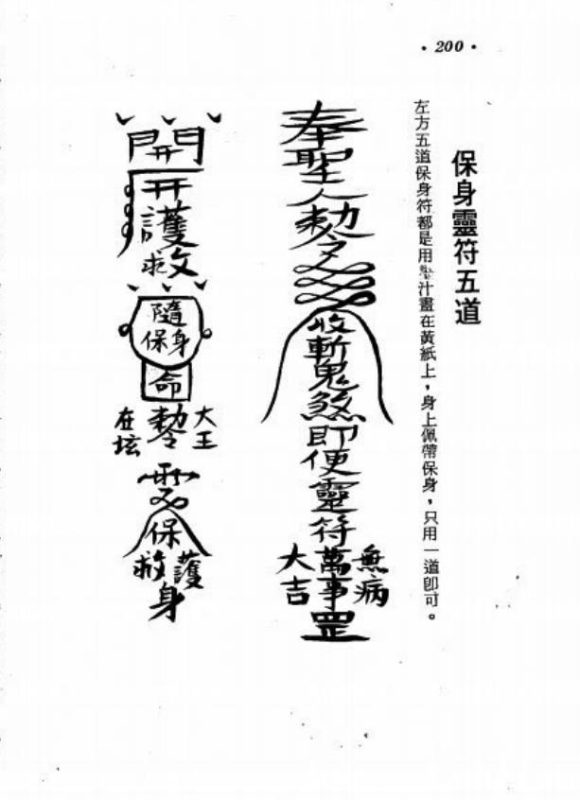 • 200 •
保身靈符五道
左方五道保身符都是用汁畫在黃紙上，身上佩帶保身，只用一道即可。
奉聖人勅令
收斬鬼煞即便靈符
無病
萬事罡
大吉
開
護救
隨身保
命
大王
勅令
在壇
保
護
救
身